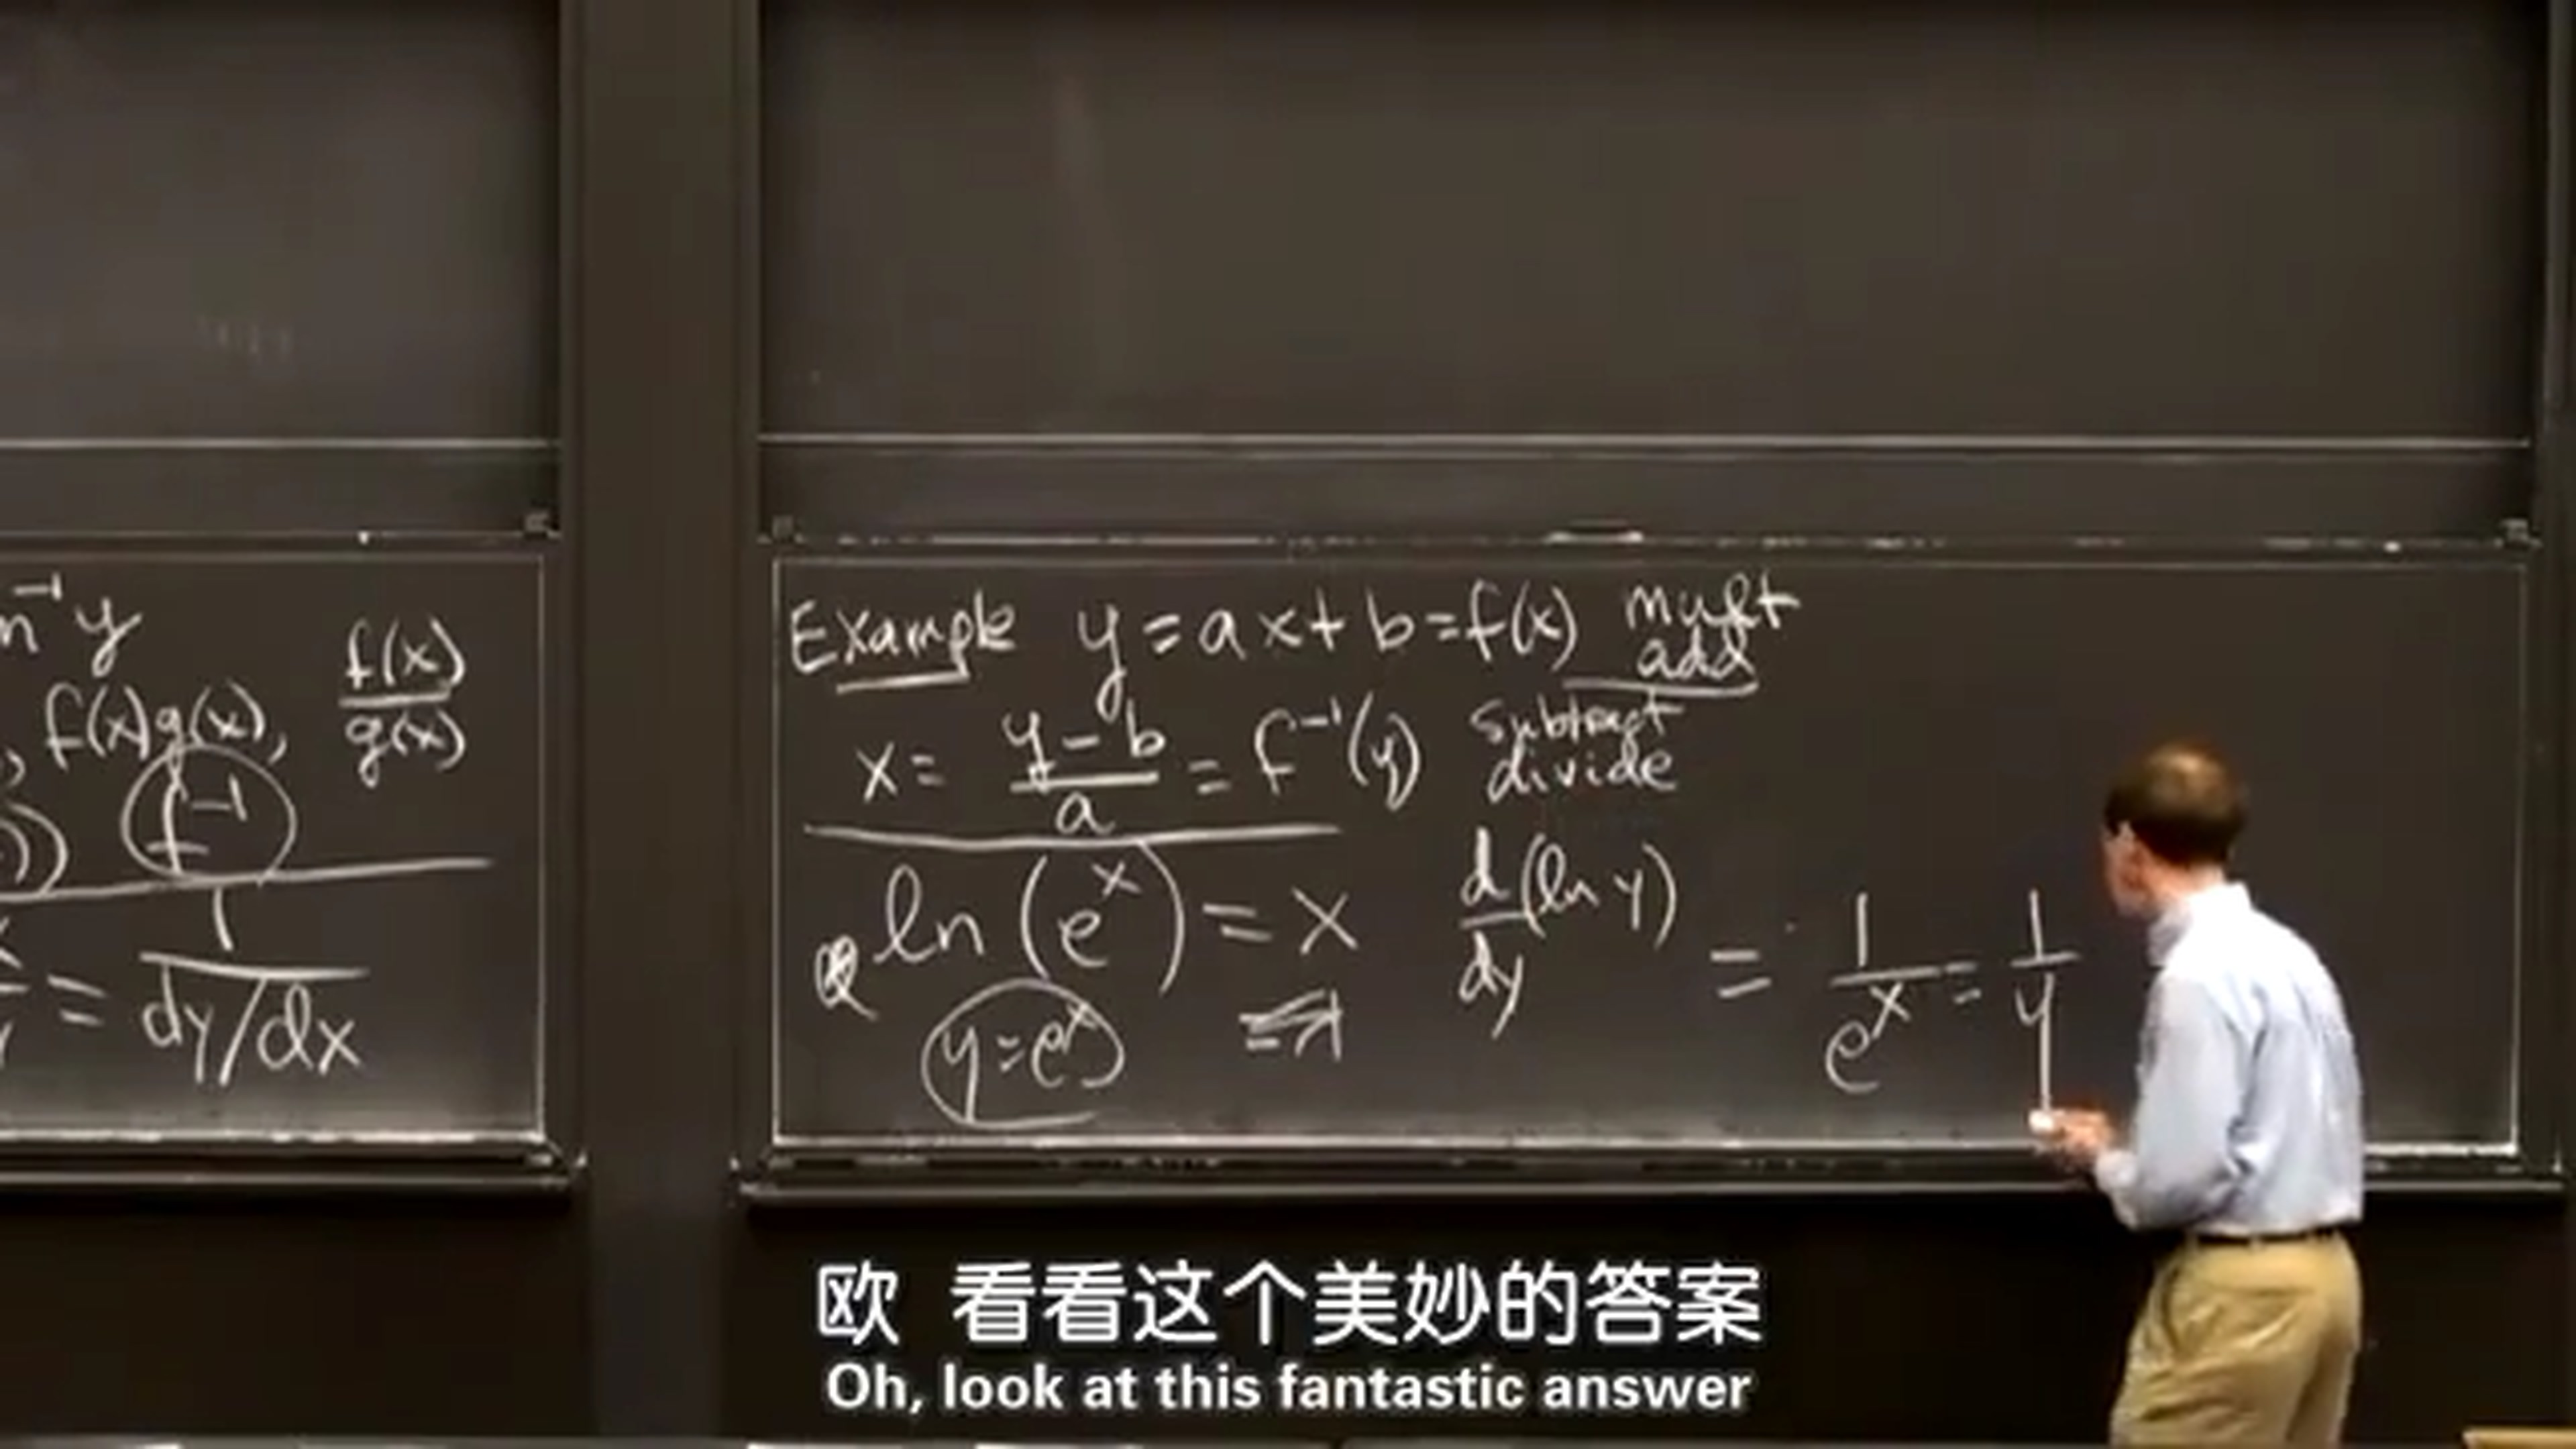 n⁻¹ y
f(x)g(x), f(x)/g(x)
f⁻¹
= 1/(dy/dx)
Example y = ax + b = f(x) mult
add
x = (y - b)/a = f⁻¹(y) subtract
divide
ln(eˣ) = x d/dy (ln y) = 1/eˣ = 1/y
y = eˣ
欧 看看这个美妙的答案
Oh, look at this fantastic answer